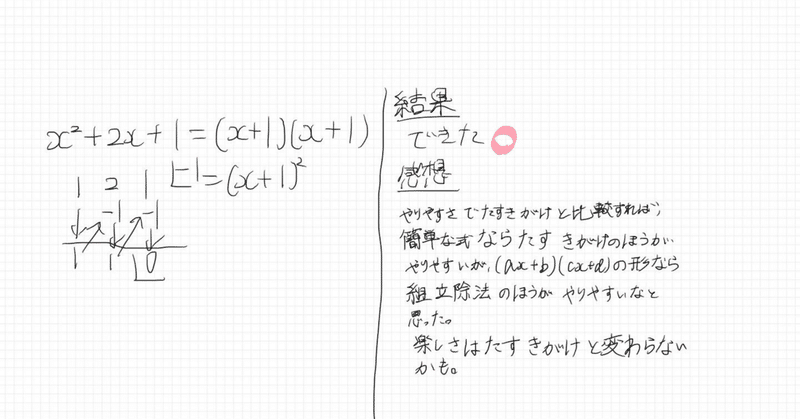 x²+2x+1=(x+1)(x+1)
=(x+1)²
1 2 1 |-1
-1 -1
1 1 0
結果
できた
感想
やりやすさでたすきがけと比較すれば、
簡単な式ならたすきがけのほうが
やりやすいが、(ax+b)(cx+d)の形なら
組立除法のほうがやりやすいなと
思った。
楽しさはたすきがけと変わらない
かも。